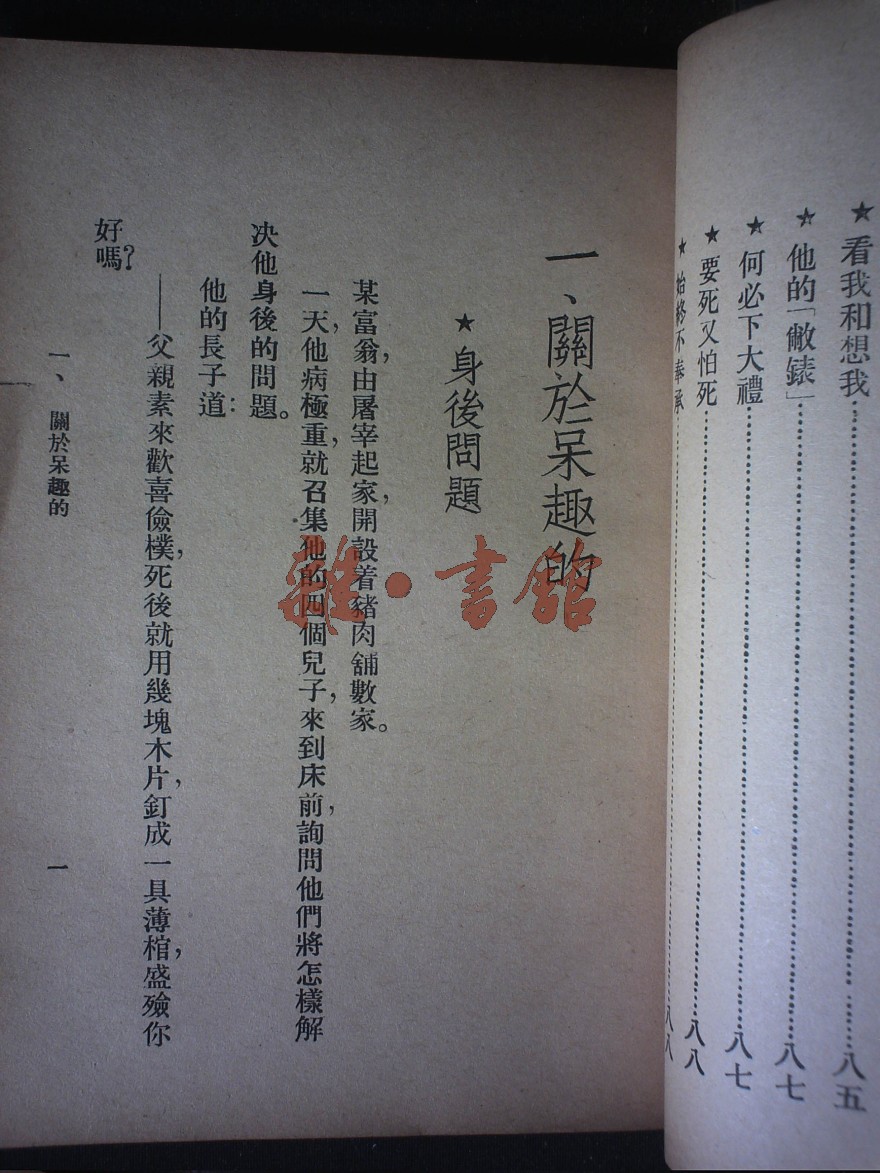 ★看我和想我……八五
★他的「敝錶」……八七
★何必下大禮……八七
★要死又怕死……八八
★始終不奉承……八八
一、關於呆趣的
★身後問題
某富翁，由屠宰起家，開設着豬肉舖數家。
一天，他病極重，就召集他的四個兒子，來到床前，詢問他們將怎樣解
决他身後的問題。
他的長子道：
——父親素來歡喜儉樸，死後就用幾塊木片，釘成一具薄棺，盛殮你
好嗎？
一、關於呆趣的
一
雜·書館